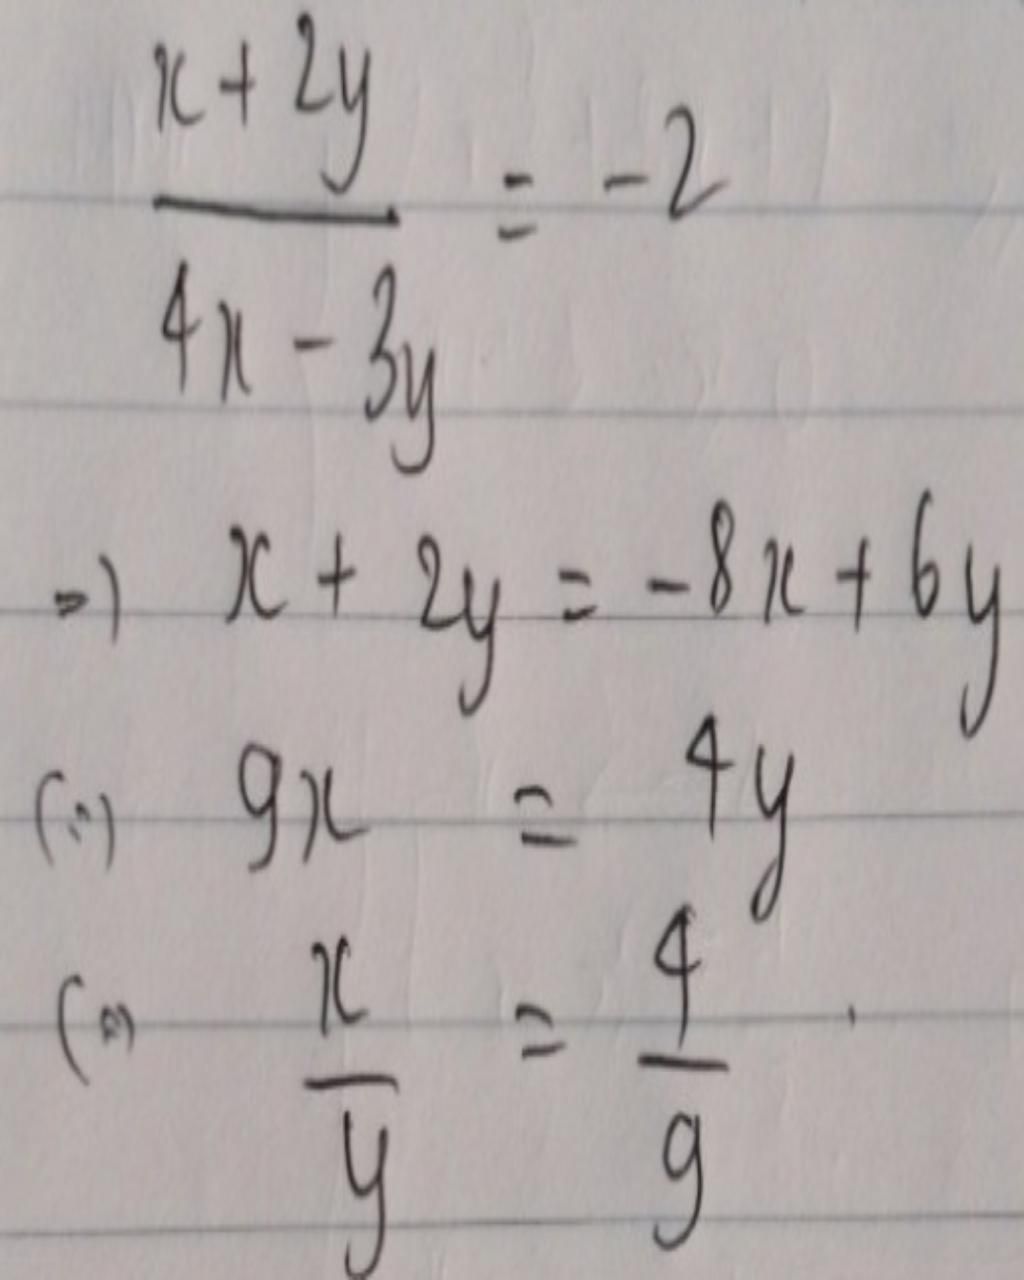 x + 2y
4x - 3y = -2
=) x + 2y = -8x + 6y
(=) 9x = 4y
(=) x/y = 4/9